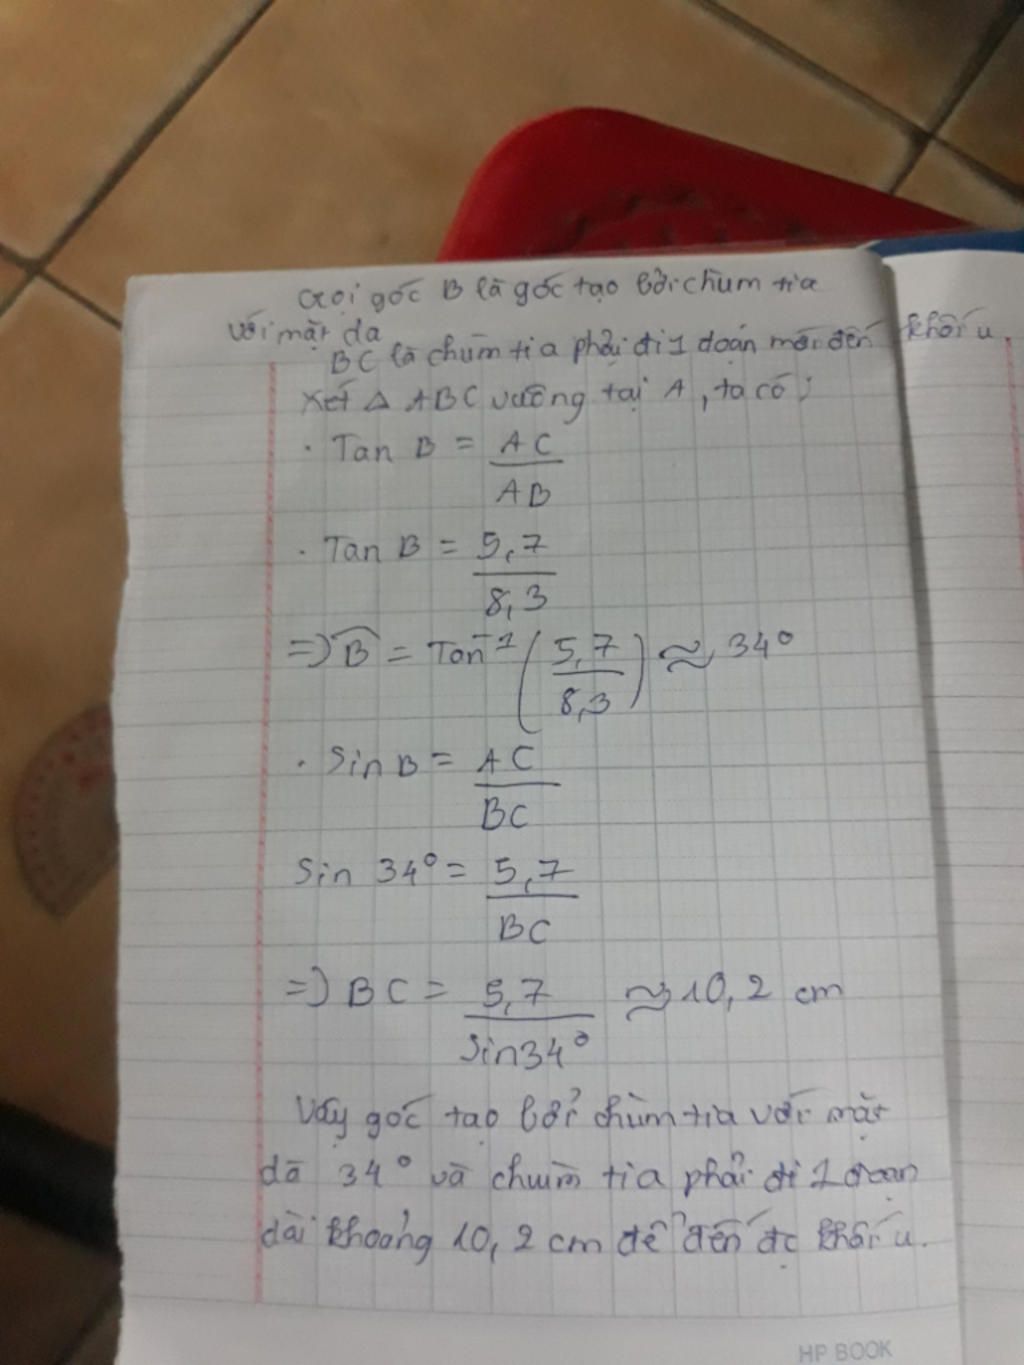 Gọi góc B là góc tạo bởi chùm tia
với mặt da
BC là chùm tia phải đi 1 đoạn mới đến khối u.
Xét △ ABC vuông tại A, ta có:
. Tan B = AC
AB
. Tan B = 5,7
8,3
=> B̂ = Tan⁻¹ (5,7 / 8,3) ≈ 34°
. Sin B = AC
BC
Sin 34° = 5,7
BC
=> BC = 5,7 ≈ 10,2 cm
Sin34°
Vậy góc tạo bởi chùm tia với mặt
da 34° và chùm tia phải đi 1 đoạn
dài khoảng 10,2 cm để đến đc khối u.
HP BOOK